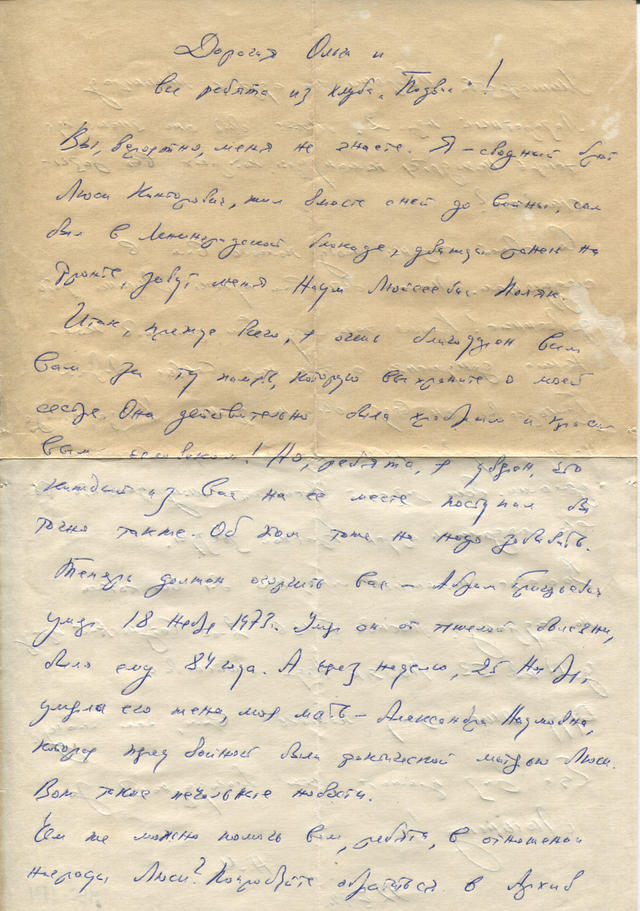 Дорогая Ольга и
все ребята из клуба „Подвиг"!
Вы, вероятно, меня не знаете. Я – сводный брат
Люси Канторович, жил вместе с ней до войны, сам
был в Ленинградской блокаде, дважды ранен на
фронте, зовут меня Наум Поляк.
Итак, прежде всего, я очень благодарен всем
вам за ту память, которую вы храните о моей
сестре. Она действительно была храбрым и краси
вым человеком! Но, ребята, я уверен, что
каждый из вас на ее месте поступил бы
точно также. Об этом тоже не надо забывать.
Теперь должен огорчить вас – Абрам
умер 18 1973г. Умер он от тяжелой болезни,
было ему 84 года. А через неделю, 25
умерла его жена, моя мать – Александра Наумовна,
которая перед войной была фактической матерью Люси.
Вот такие печальные новости.
Чем же можно помочь вам, ребята, в отношении
награды Люси? Попробуйте обратиться в Архив